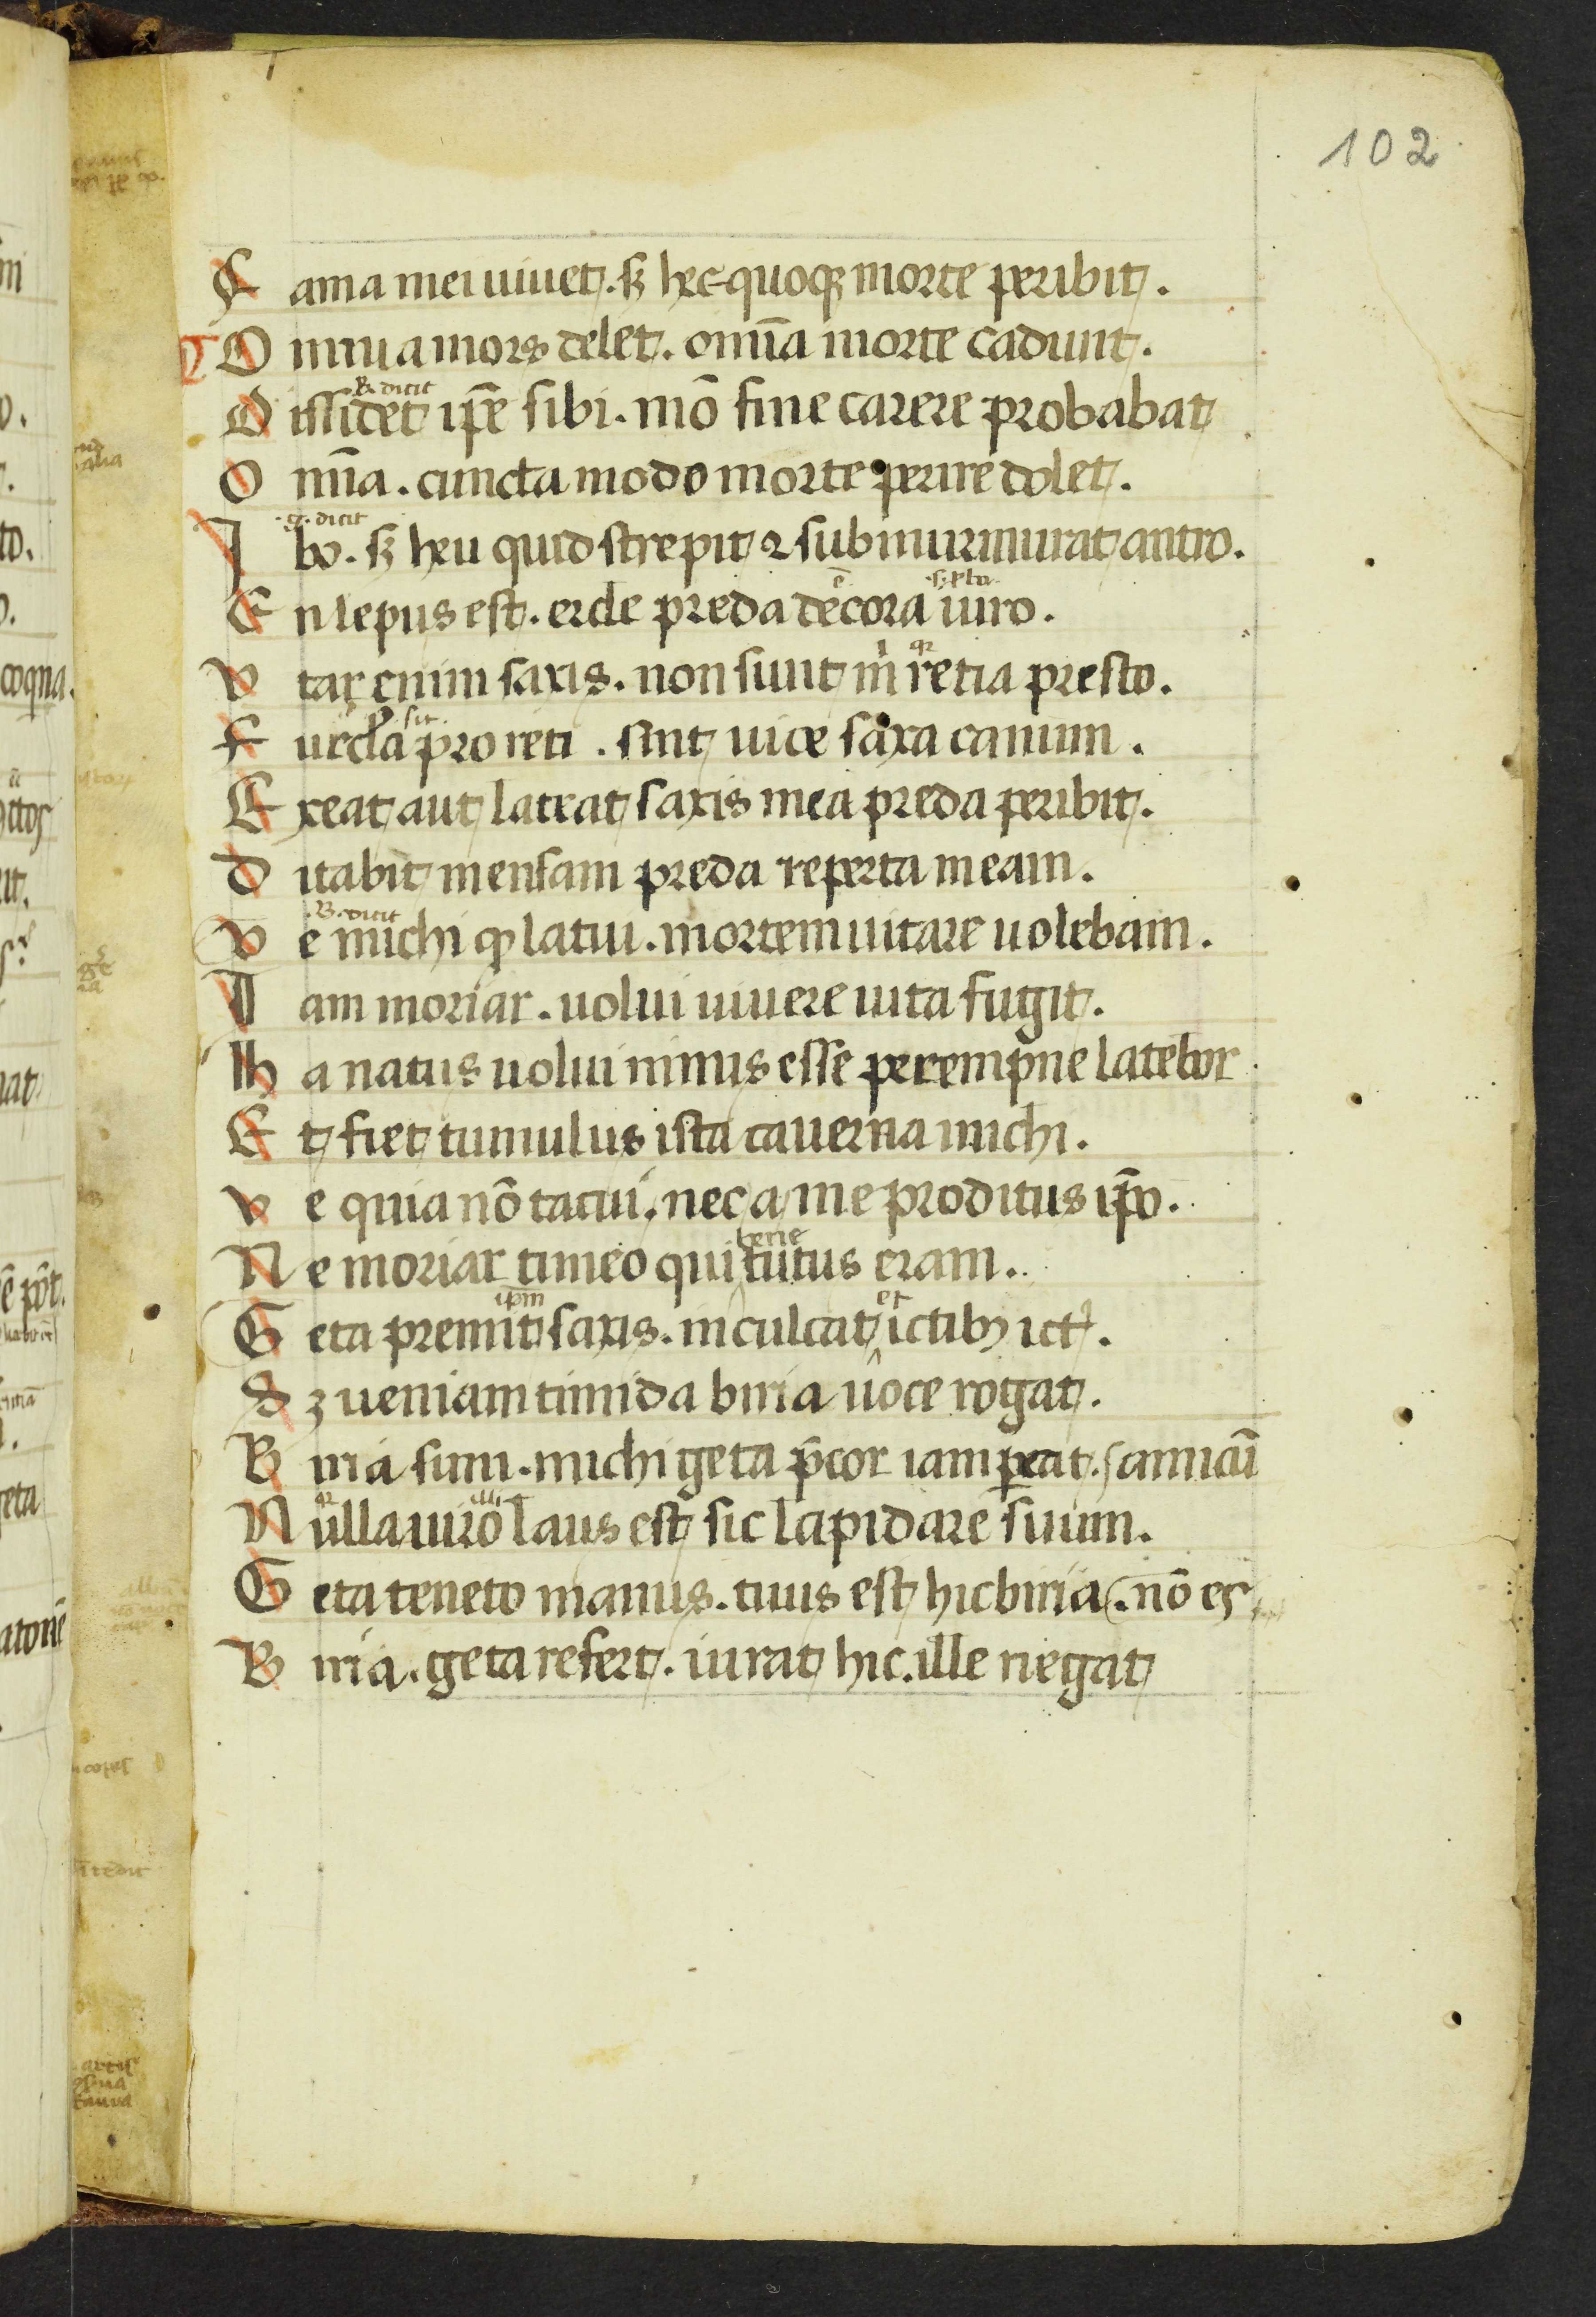 102
F ama mei uiuet. sꝫ hec quoqꝫ morte peribit.
O mnia mors delet. om̄ia morte cadunt.
B. dicit
D issidet ip̄e sibi. mō fine carere probabat
O mīa. cuncta modo morte perire dolet.
.g. dicit
I bo. sꝫ heu quid strepit ⁊ submurmurat antro.
E n lepus est. ercle preda decora uiro.
V tar enim saxis. non sunt m̄ retia presto.
sit
F urcla pro reti. sint uice saxa canum.
E xeat aut latrat saxis mea preda peribit.
D itabit mensam preda reperta meam.
.B. dicit
V e michi ꝙ latui. mortem uitare uolebam.
I am moriar. uolui uiuere uita fugit.
H a natus uolui nimus esse perempne latebor
E t fiet tumulus ista cauerna michi.
V e quia nō tacui. nec a me proditus ip̄o.
bene
N e moriar timeo qui tutus eram.
ipm et
G eta premit saxis. inculcat ictibꝫ ictꝰ.
S ꝫ ueniam timida birria uoce rogat.
B irria sum. michi geta p̄cor iam ꝑcat. amicū
illi
N ulla uiro laus est sic lapidare suum.
G eta teneto manus. tuus est hic birria. nō es
B irria. geta refert. iurat hic. ille negat